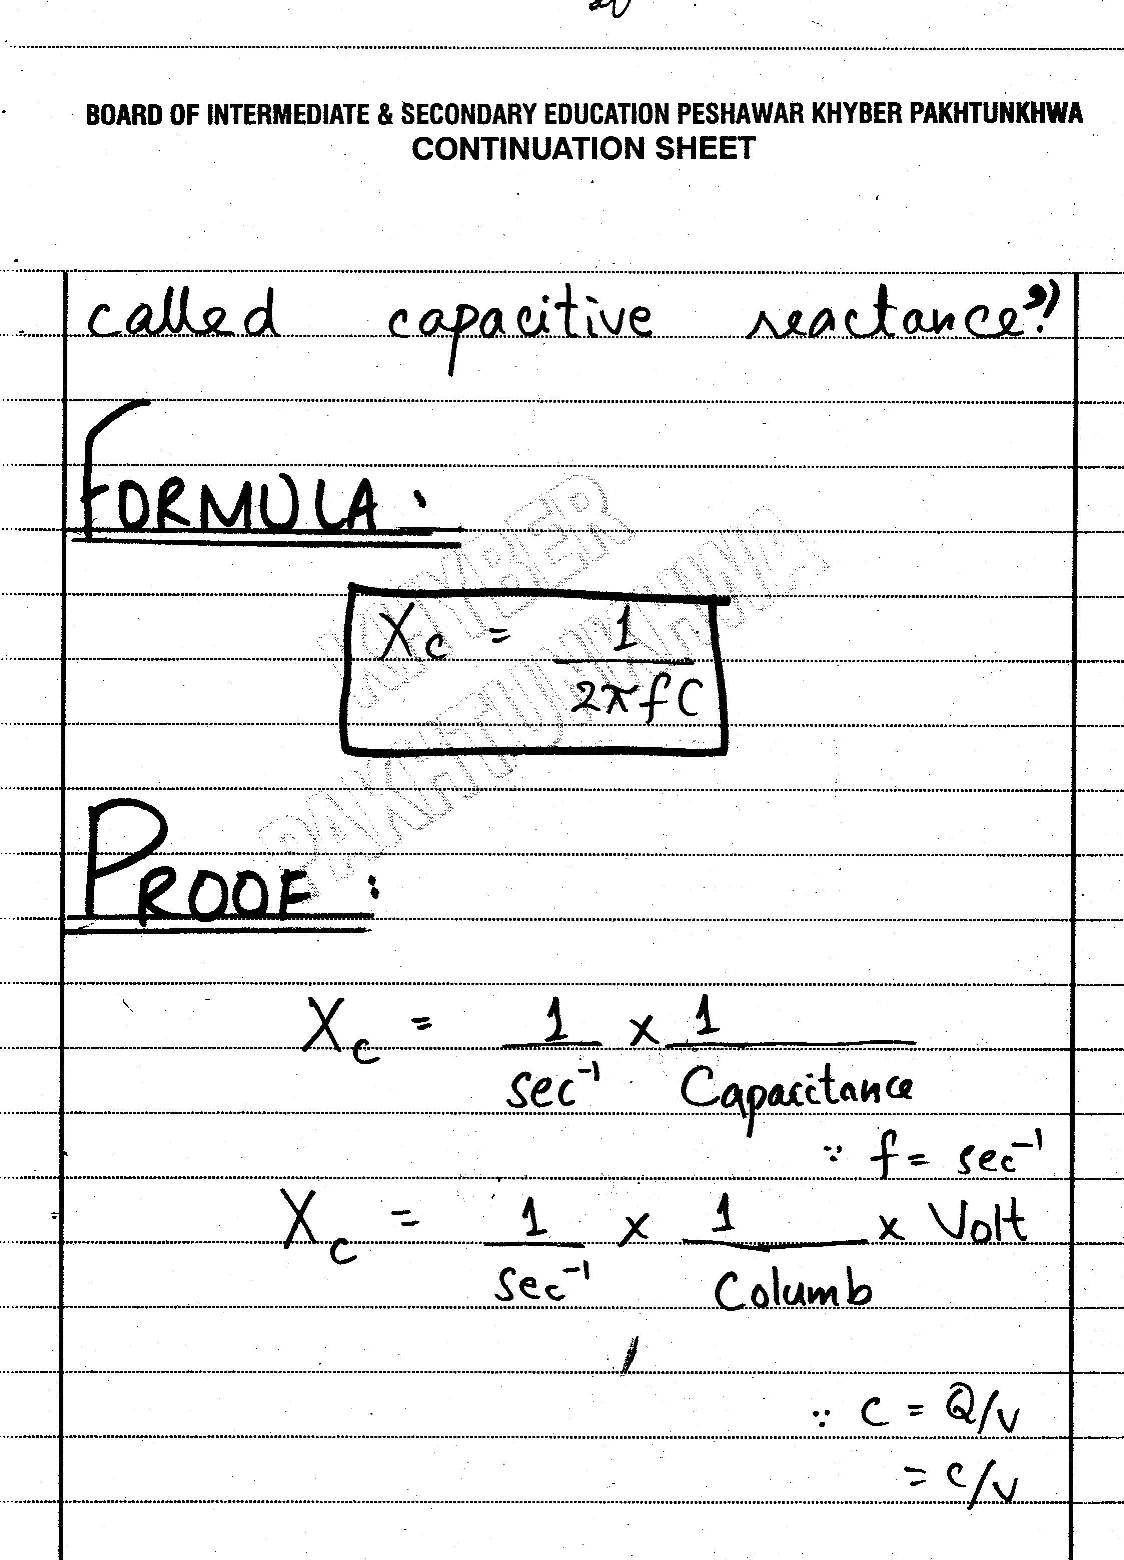 BOARD OF INTERMEDIATE & SECONDARY EDUCATION PESHAWAR KHYBER PAKHTUNKHWA
CONTINUATION SHEET
called capacitive reactance")
FORMULA:
KHYBER
PAKHTUNKHWA
Xc = 1
2πfC
PROOF:
Xc = 1 × 1
sec⁻¹ Capacitance
∵ f = sec⁻¹
Xc = 1 × 1 × Volt
sec⁻¹ Columb
∵ C = Q/V
= C/V